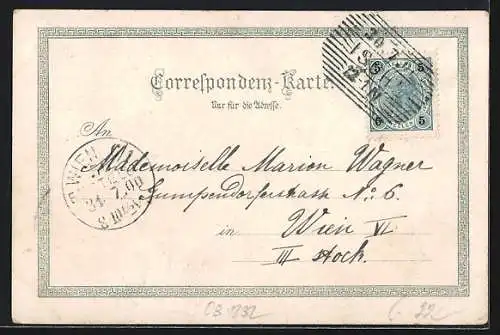 Correspondenz-Karte.
Nur für die Adresse.
An
Mademoiselle Marion Wagner
Gumpendorferstrasse No: 6
in Wien VI
III Stock.
WIEN
24.7.00
5
5
5
5